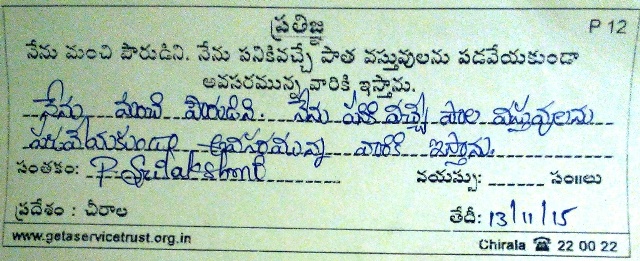 ప్రతిజ్ఞ P 12
నేను మంచి పౌరుడిని. నేను పనికివచ్చే పాత వస్తువులను పడవేయకుండా
అవసరమున్న వారికి ఇస్తాను.
నేను మంచి పౌరుడిని. నేను పనికి వచ్చే పాత వస్తువులను
పడవేయకుండా అవసరమున్న వారికి ఇస్తాను.
సంతకం: P. Srilakshmi వయస్సు: ______ సం॥లు
ప్రదేశం : చీరాల తేదీ: 13/11/15
www.getaservicetrust.org.in Chirala ☎ 22 00 22